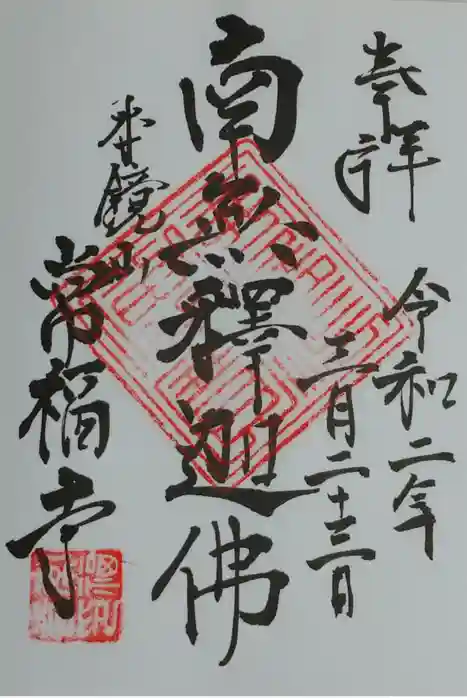 奉拝
令和二年
三月二十三日
南無釋迦佛
常福寺